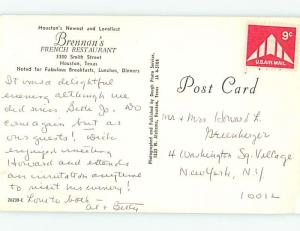 Houston's Newest and Loveliest
Brennan's
FRENCH RESTAURANT
3300 Smith Street
Houston, Texas
Noted for Fabulous Breakfasts, Lunches, Dinners
It was a delightful
evening although we
did miss Bette Jo. Do
come again but as
our guests! Dick
enjoyed meeting
Howard and extends
an invitation anytime
to visit his winery!
Love to both -
Al + Betty
26230-C
Photographed and Published by Gough Photo Service,
1820 W. Alabama, Houston, Texas
Post Card
9¢
U.S. AIR MAIL
Mr + Mrs Howard L
Greenberger
4 Washington Sq. Village
New York, NY
10012